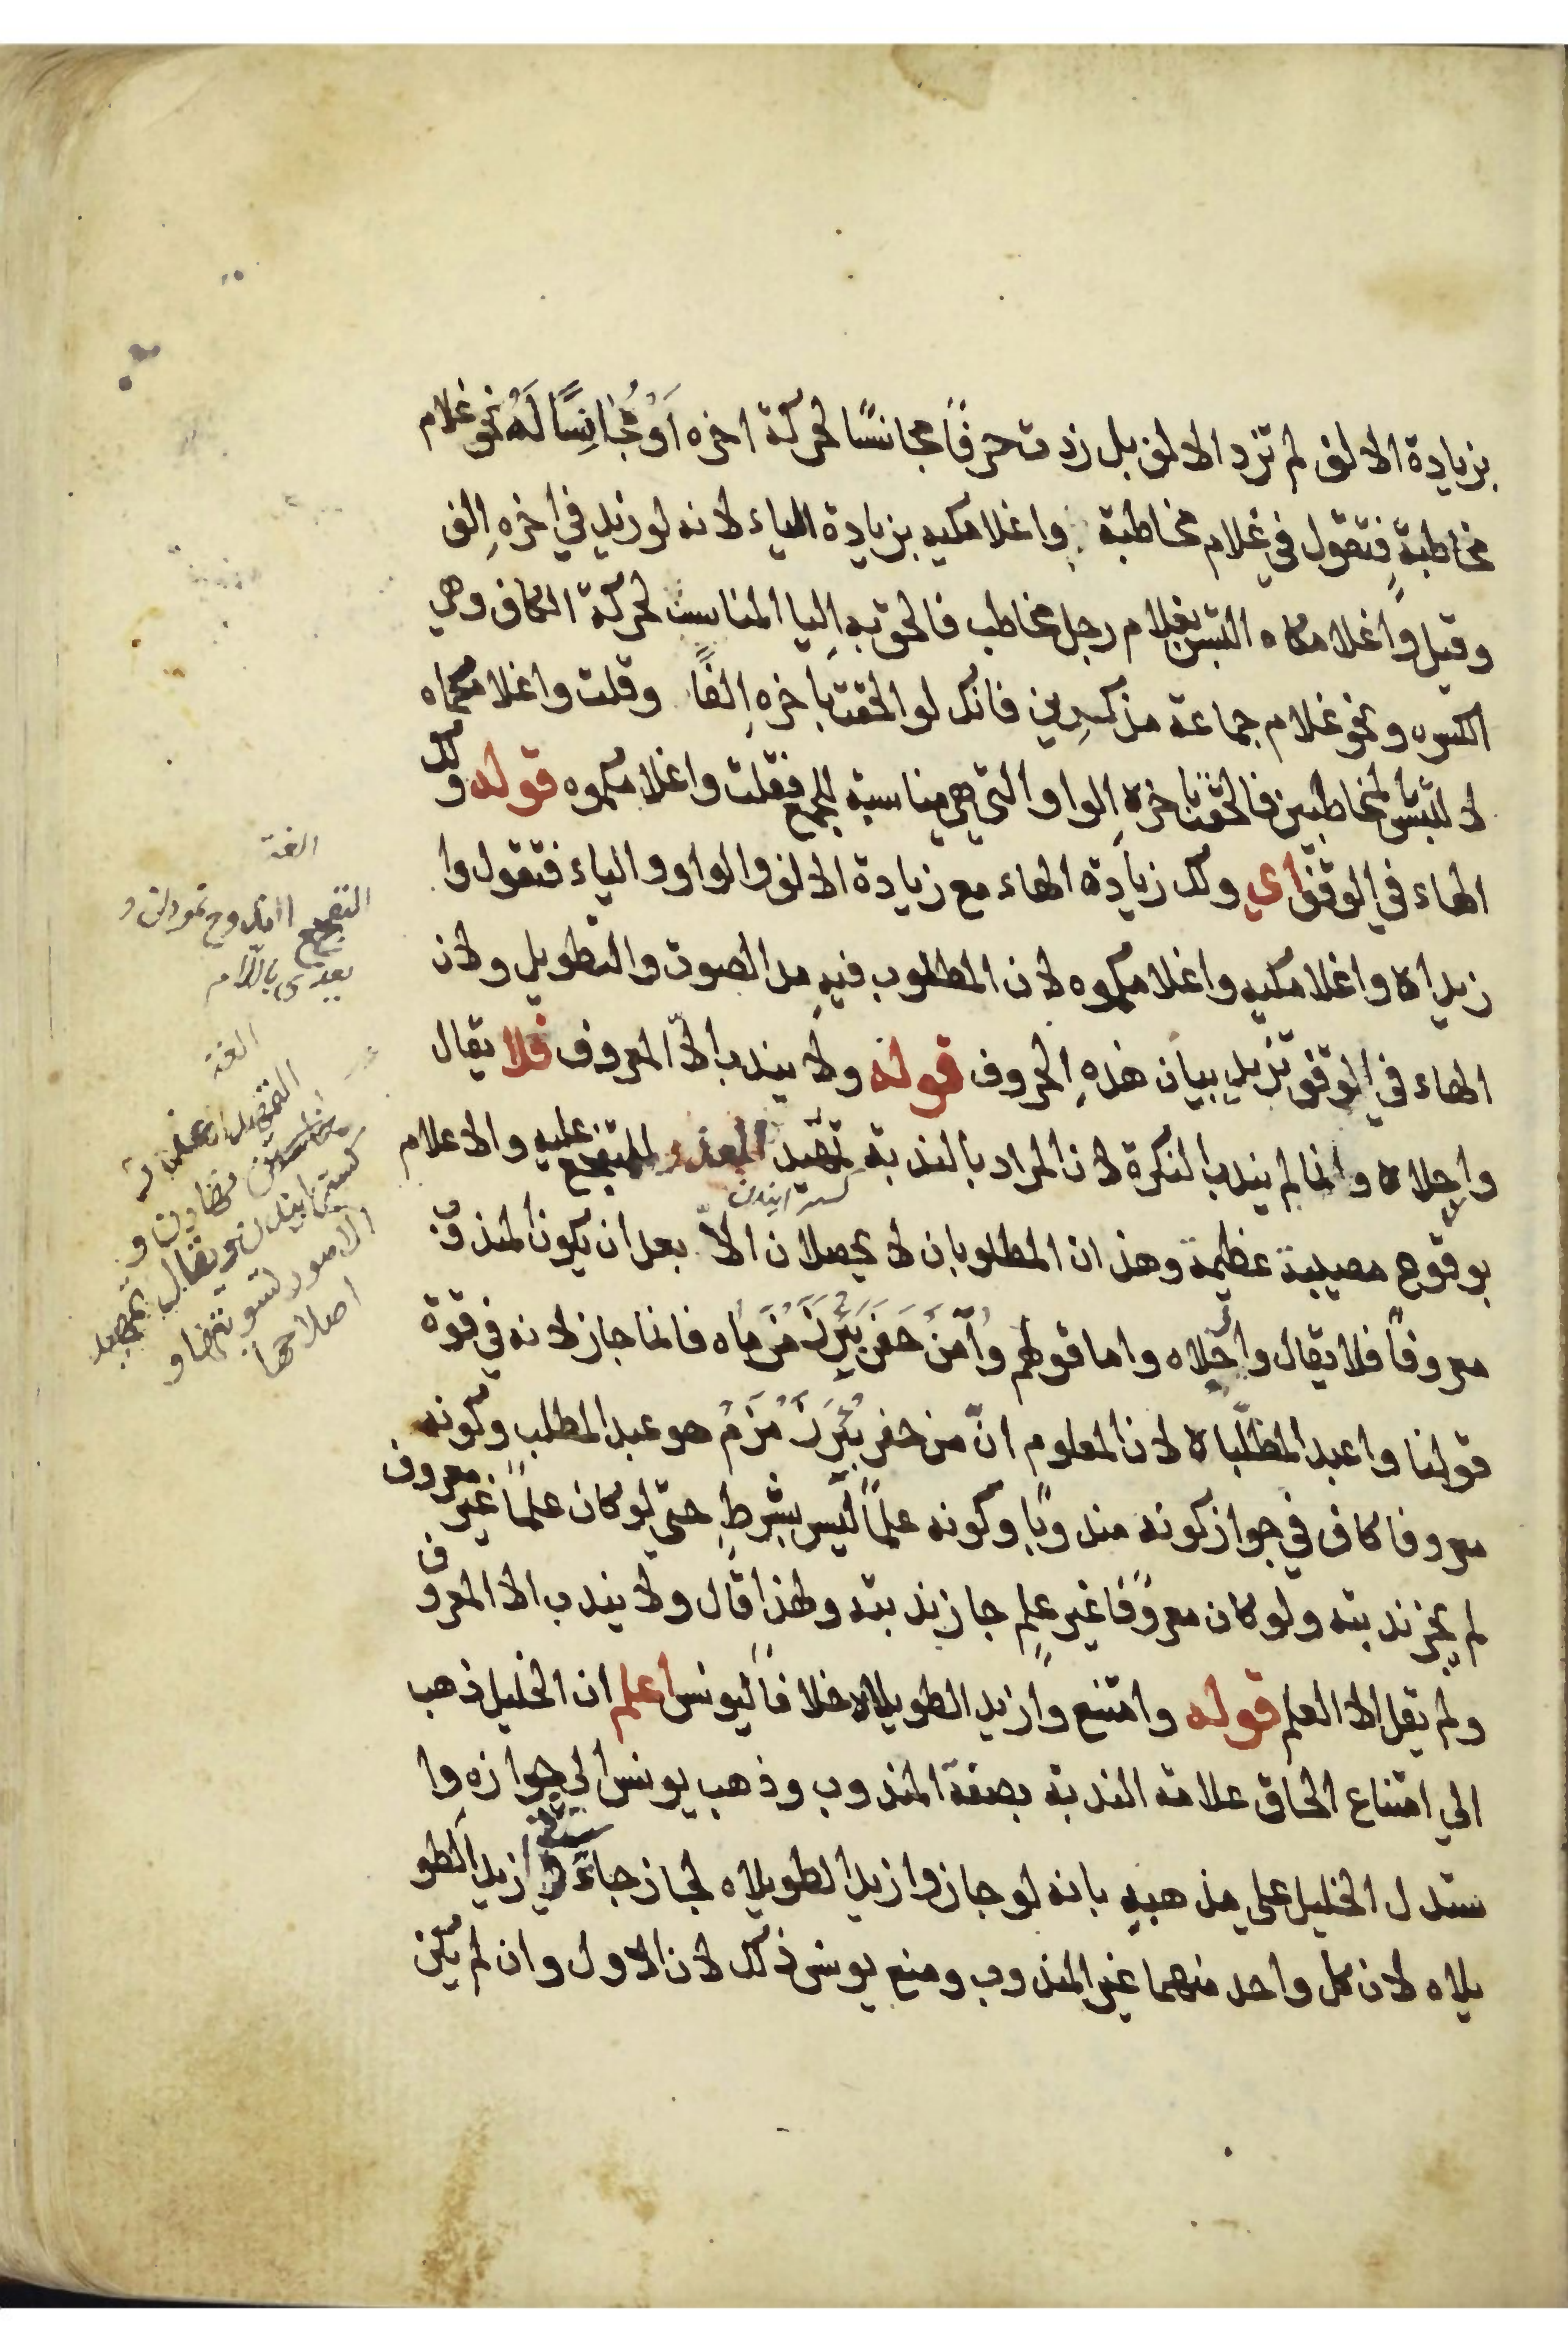 بزيادة الالف لم تزد الالف بل زدت حرفًا مجانسًا لحركة اخره اَوْ مُجَانِسًا لَهُ نحو غلام
مخاطبةٍ فتقول في غلام مخاطبة واغلامكيه بزيادة الياء لانه لو زيد في اخرهِ الف
وقيل واغلامكاه التبس بغلام رجل مخاطب فالحق به اليا المناسب لحركة الكاف وهي
الكسره ونحو غلام جماعة مذكرين فانك لو الحقت باخرهِ الفًا وقلت واغلامكماه
لالتبس بالمخاطبين فالحقت باخرهِ الواو التي هي مناسبة للجمع فقلت واغلامكموه قوله ولك
الهاء في الوقف اي ولك زيادة الهاء مع زيادة الالف والواو والياء فتقول وا
زيداه واغلامكيه واغلامكموه لان المطلوب فيهِ مد الصوت والتطويل ولان
الهاء في الوقف تزيد بيان هذهِ الحروف قوله ولا يندب الاّ المعروف فلا يقال
وارجلاه وانما لم يندب النكرة لان المراد بالندبة تمهيد العذر للمتفجع عليه والاعلام
بوقوع مصيبة عظيمة وهذان المطلوبان لا يحصلان الاّ بعد ان يكون المندوب
معروفًا فلا يقال وارجلاه واما قولهم وَامَنْ حَفَرَ بِئْرَ زَمْزَمَاه فانما جاز لانه في قوة
قولنا واعبد المطّلباه لان المعلوم انّ من حفر بِئْرَ زَمْزَمَ هو عبد المطلب وكونه
معروفا كاف في جواز كونه مندوبًا وكونه علمًا ليس بشرطٍ حتى لو كان علمًا غير معروف
لم يجز ندبته ولو كان معروفًا غير علمٍ جاز ندبته ولهذا قال ولا يندب الا المعروف
ولم يقل الا العلم قوله وامتنع وازيد الطويلاه خلافًا ليونس اعلم ان الخليل ذهب
الي امتناع الحاق علامة الندبة بصفة المندوب وذهب يونس الي جوازه وا
ستدل الخليل على مذهبهِ بانه لو جاز وازيد الطويلاه لجاز جاءني زيد الطو
يلاه لان كل واحد منهما غير المندوب ومنع يونس ذلك لان الاول وان لم يكن
التفجع
يعدى باللام
الامور لتسويتها و
اصلاحها